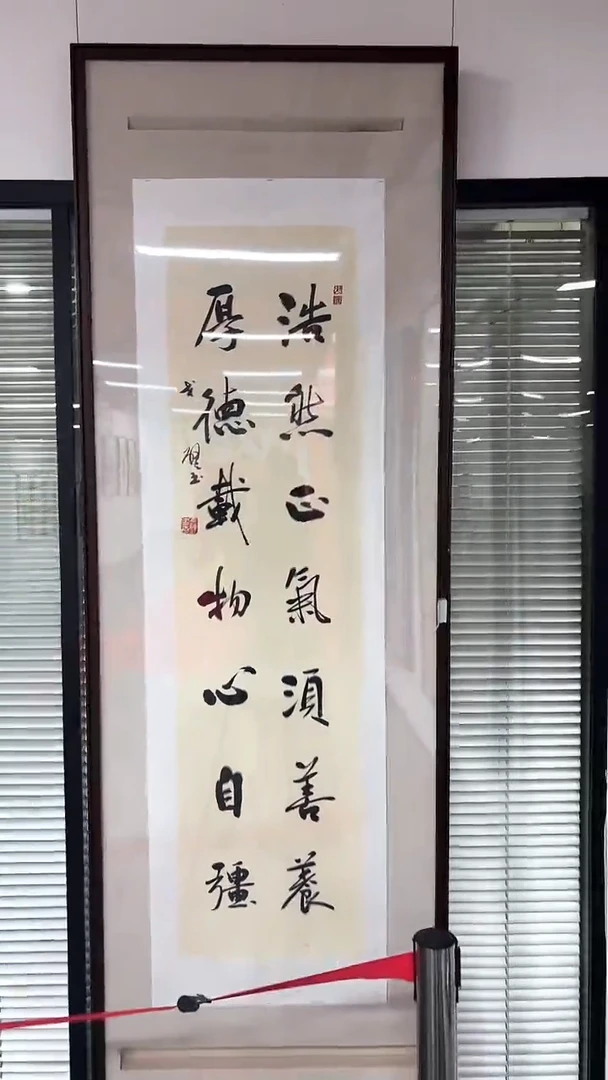 浩然正氣須善養
厚德載物心自彊